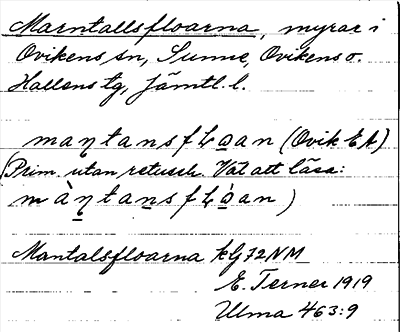 Marntallsfloarna, myrar i
Ovikens sn, Sunne, Ovikens o.
Hallens tg, Jämtl. l.
maŋtansfLo̲an (Ovik EA)
(Prim. utan retusch. Väl att läsa:
màŋ̲tan̲sfLó̲an)
Mantalsfloarna kG 72 NM
E. Terner 1919
Ulma 463:9